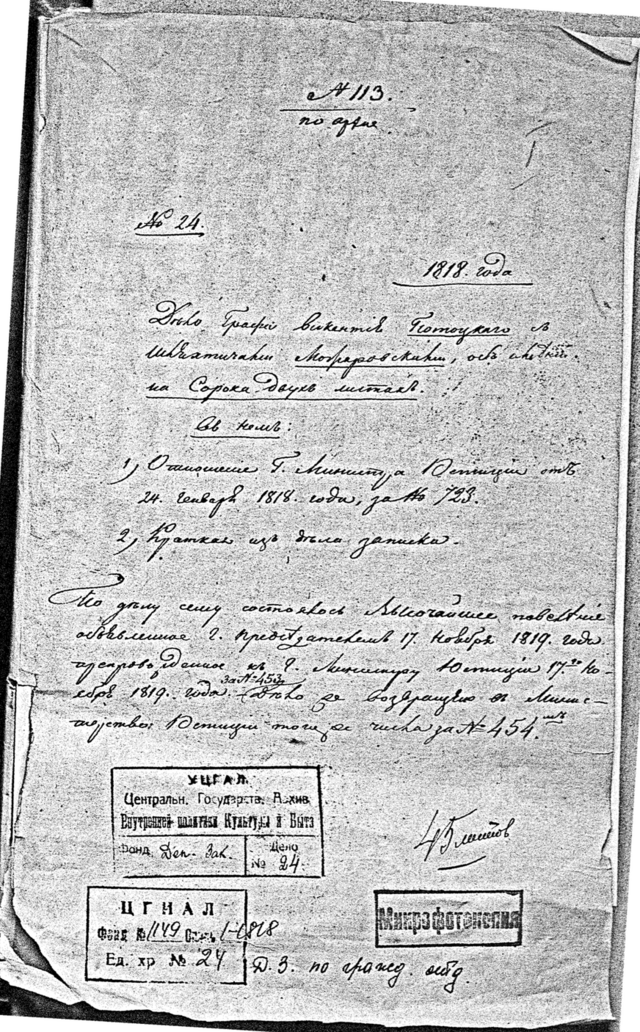 № 113.
по архие
№ 24.
1818. года
Дѣло Графа Викентiя Потоцкаго съ
Шляхтичами, объ
на Сорока двухъ листахъ.
Въ немъ:
1, Отношенiе Г. Министра Юстицiи отъ
24. Генваря 1818. года, за № 723.
2, Краткая изъ дѣла записка.
По дѣлу сему состоялось Высочайшее повелѣнiе
объявленное Г. Предсѣдателемъ 17. Ноября 1819. года
препровожденное къ Г. Министру Юстицiи 17.го Но-
ября 1819. года за № 453. Дѣло же возвращено въ Минис-
терство Юстицiи того же числа за № 454.мъ
УЦГАЛ.
Центральн. Государств. Архив
Внутренней политики Культуры и Быта
Фонд. Деп. Зак. Дело
№ 24.
45 листов
ЦГИАЛ
Фонд № 1149 Опись 1-1818
Ед. хр № 24
Микрофотокопия
Д. З. по гражд. отд.